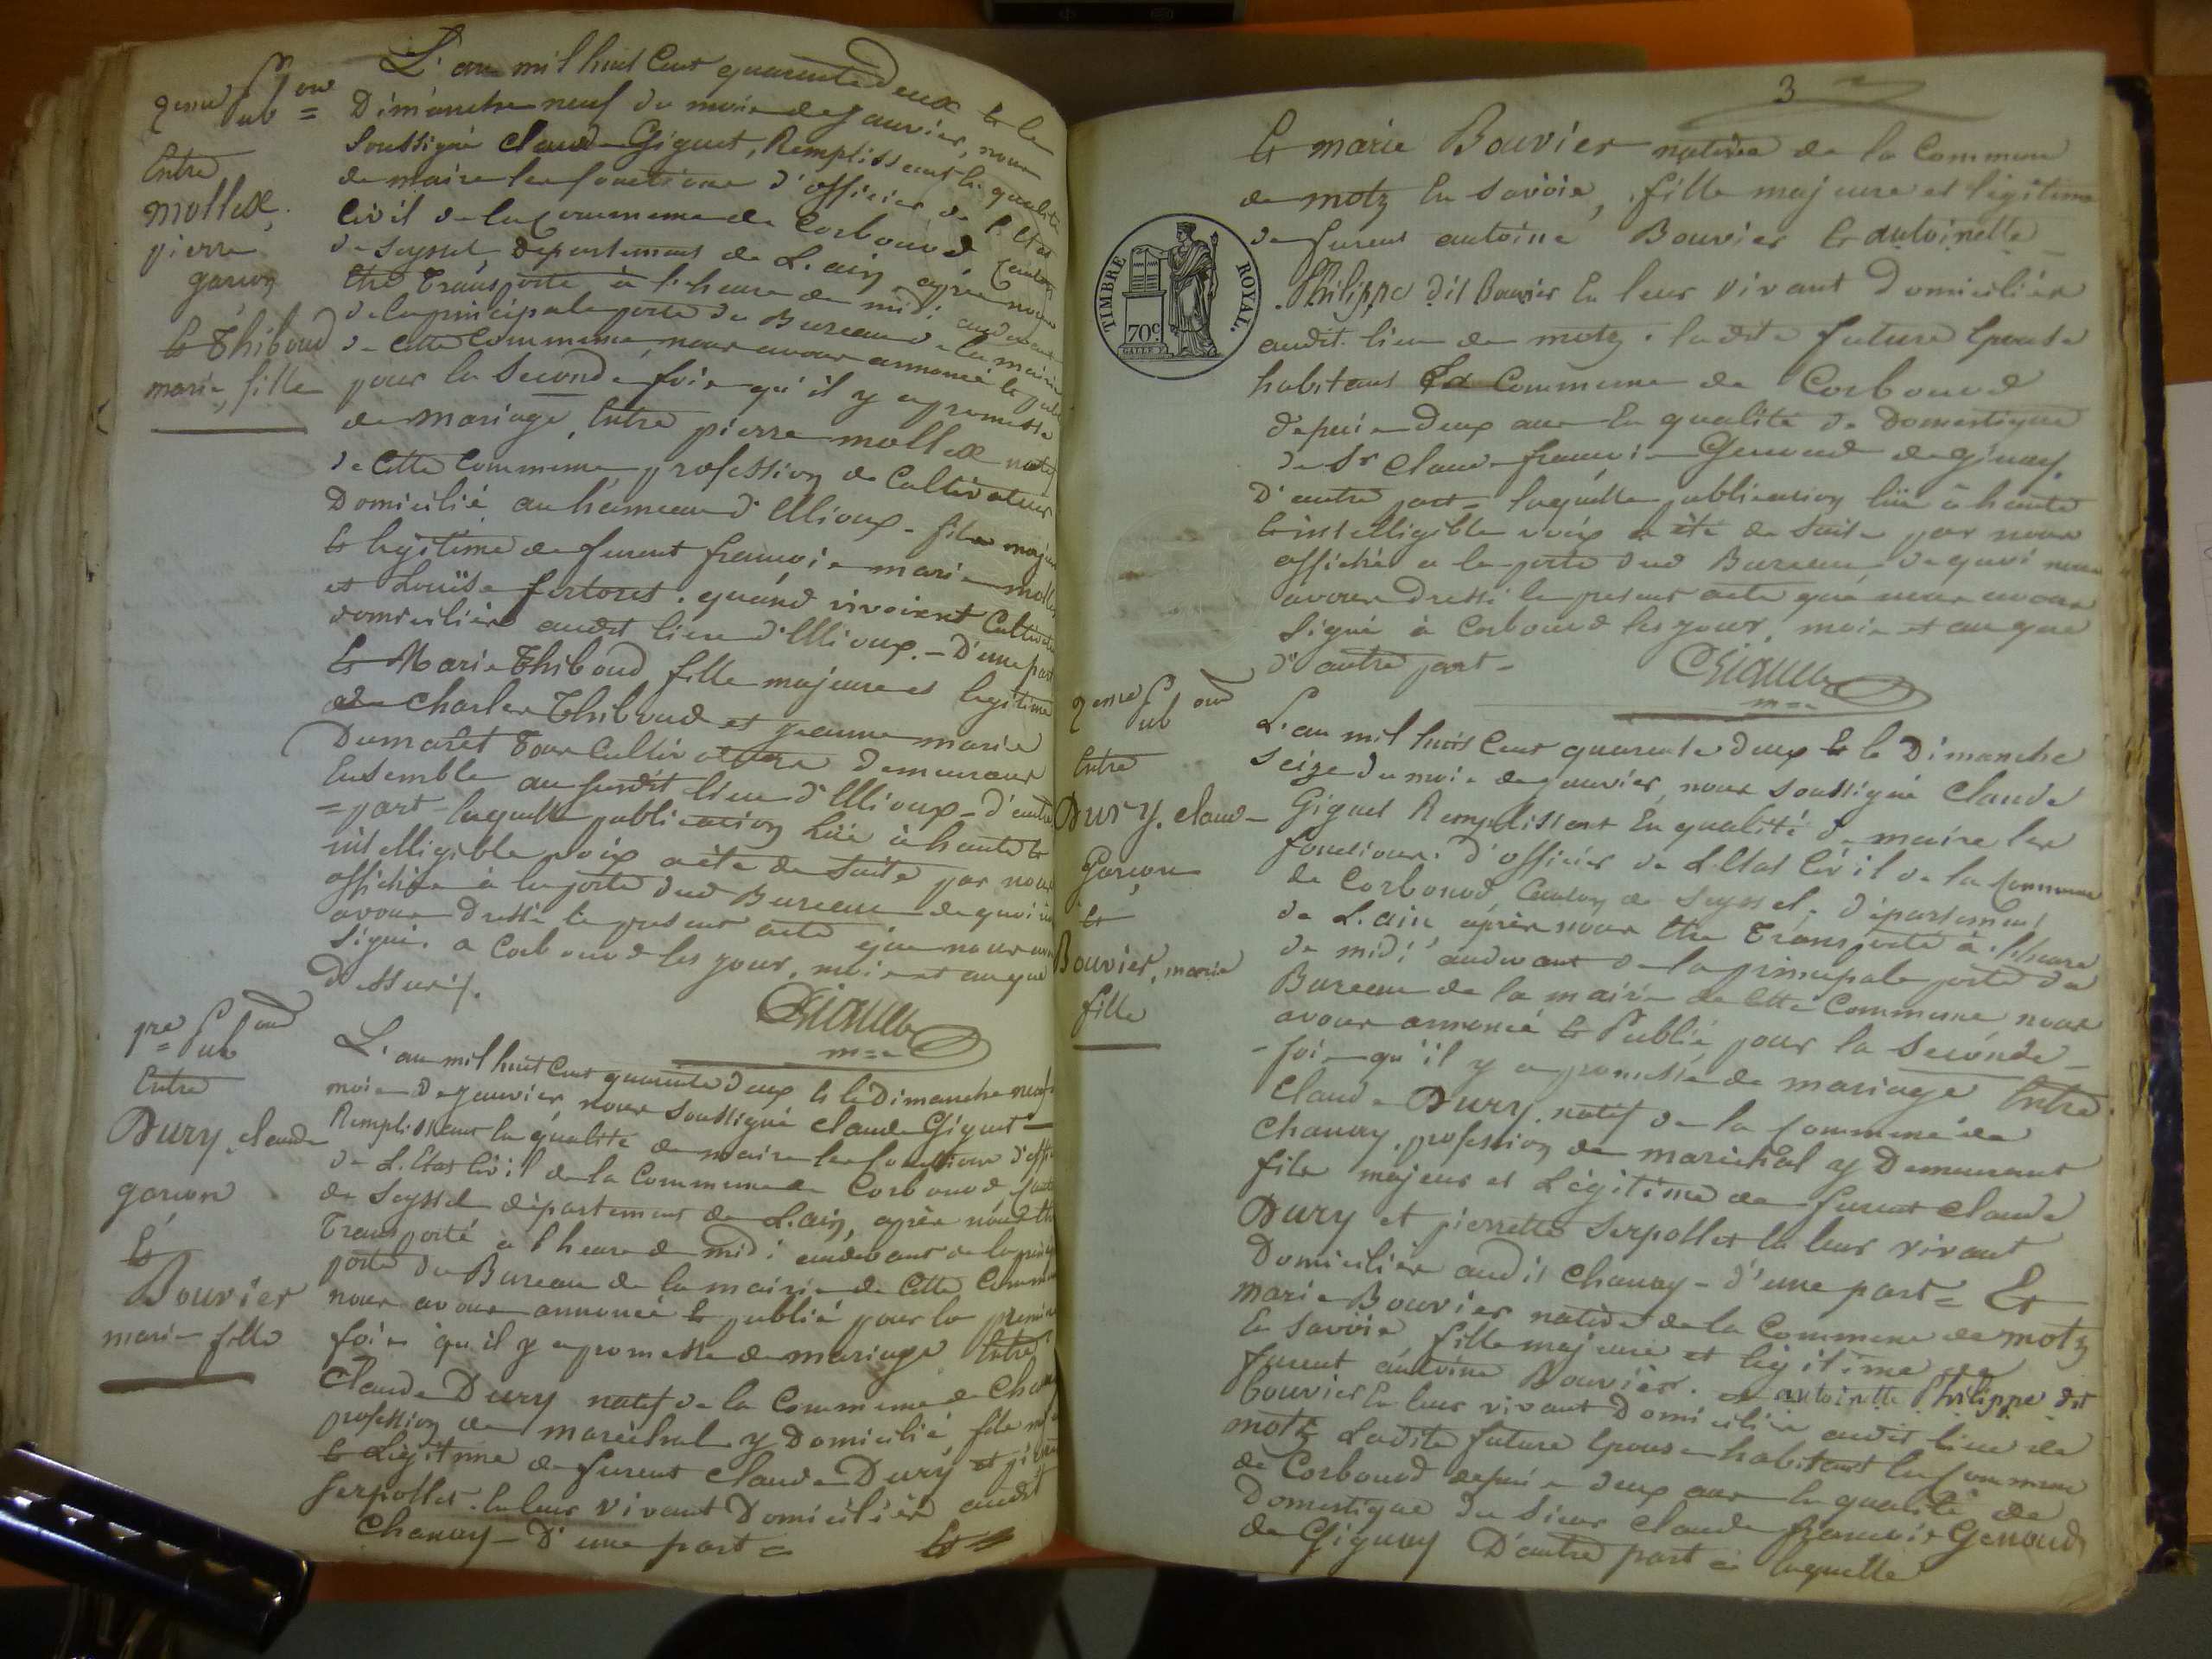 2eme Pub on =
Entre
mollex,
pierre
garçon
Et Thiboud
marie, fille
L'an mil huit Cent quarante Deux Et le
Dimanche neuf du mois de janvier, nous
Soussigné Claude Giguet, Remplissant la qualité
de maire les fonctions d'officier de l'Etat
Civil de la Commune de Corbonod Canton
de Seyssel, département de L'ain, après nous
Etre Transporté à l'heure de midi audevant
de la principale porte du Bureau de la mairie
de Cette Commune, nous avons annoncé et publié
pour la Seconde fois qu'il y a promesse
de mariage, Entre pierre mollex natif
de Cette Commune, profession de Cultivateur
Domicilié au hameau d'Ellioux - fils majeur
Et légitime de furent françois marie mollex
et Louise fertoret. quand vivoient Cultivateurs
domiciliés audit lieu d'Ellioux. - D'une part
Et Marie Thiboud fille majeure et legitime
de Charles Thiboud et jeanne marie
Dumaret Tous Cultivateurs demeurans
Ensemble au susdit lieu d'Ellioux - d'autre
= part laquelle publication lüe à haute Et
intelligible voix a été de suite par nous
affichée à la porte dud Bureau de quoi nous
avons dressé le présent acte que nous avons
signé. a Corbonod les jour, mois et an que
Dessus ./.
CGiguet
m=e
1re = Pub on
Entre
Dury, claude
garçon
Et
Bouvier
marie fille
L'an mil huit Cent quarante deux Et le Dimanche neuf
mois de janvier, nous Soussigné Claude Giguet
Remplissant la qualité de maire les fonctions d'officier
de L'Etat Civil de la Commune de Corbonod, Canton
de Seyssel département de L'ain, après nous Etre
Transporté à l'heure de midi audevant de la principale
porte du Bureau de la mairie de Cette Commune
nous avons annoncé Et publié pour la premiere
fois qu'il y a promesse de mariage Entre
Claude Dury natif de la Commune de Chanay
profession de maréchal y Domicilié, fils majeur
Et Légitime de furent Claude Dury et pierrette
Serpollet. En leur vivant Domiciliés audit
Chanay - D'une part = Et =
3
Et marie Bouvier native de la Commune
de motz En Savoie, fille majeure et légitime
de furent antoine Bouvier Et antoinette
Philippe dit Bouvier En leur vivant Domiciliés
audit lieu de motz. ladite future Epouse
habitant La Commune de Corbonod
depuis deux ans En qualité de Domestique
de Sr Claude françois Genoud de gignay.
D'autre part = laquelle publication lüe à haute
Et intelligible voix a été de suite par nous
affichée a la porte dud Bureau, de quoi nous
avons dressé le présent acte que nous avons
Signé à Corbonod les jour, mois et an que
d'autre part =
CGiguet
m=e
TIMBRE ROYAL.
70c.
2eme Pub on
Entre
Dury, claude
Garçon
Et
Bouvier, marie
fille
L'an mil huit Cent quarante deux Et le Dimanche
Seize du mois de janvier, nous soussigné Claude
Giguet Remplissant En qualité de maire les
fonctions d'officier de L'Etat Civil de la Commune
de Corbonod Canton de Seyssel, département
de L'ain après nous Etre Transporté à l'heure
de midi audevant de la principale porte du
Bureau de la mairie de Cette Commune, nous
avons annoncé Et Publié pour la Seconde
- fois qu'il y a promesse de mariage Entre
Claude Dury, natif de la Commune de
Chanay, profession de maréchal y Demeurant
fils majeur et Légitime de furent Claude
Dury et pierrette Serpollet En leur vivant
Domiciliés audit Chanay - d'une part = Et
marie Bouvier native de la Commune de motz
En Savoie fille majeure et légitime de
furent antoine Bouvier. et antoinette Philippe dit
bouvier En leur vivant Domiciliés audit lieu de
motz Ladite future Epouse habitant la Commune
de Corbonod depuis deux ans En qualité de
Domestique du Sieur Claude françois Genoud
de Gignay D'autre part = laquelle